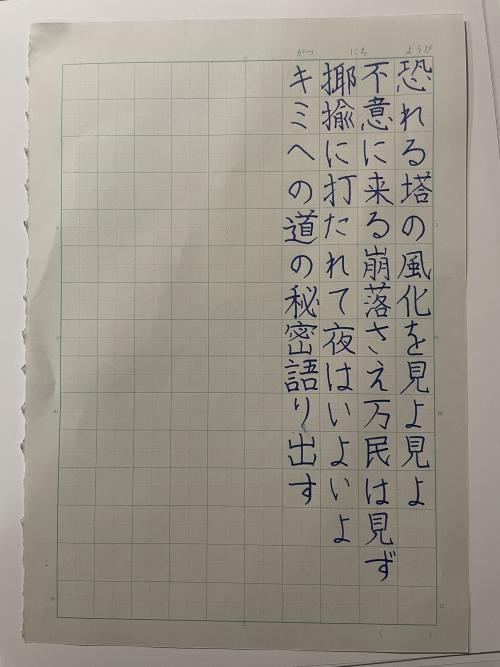 がつ にち ようび
恐れる塔の風化を見よ見よ
不意に来る崩落さえ万民は見ず
揶揄に打たれて夜はいよいよ
キミへの道の秘密語り出す